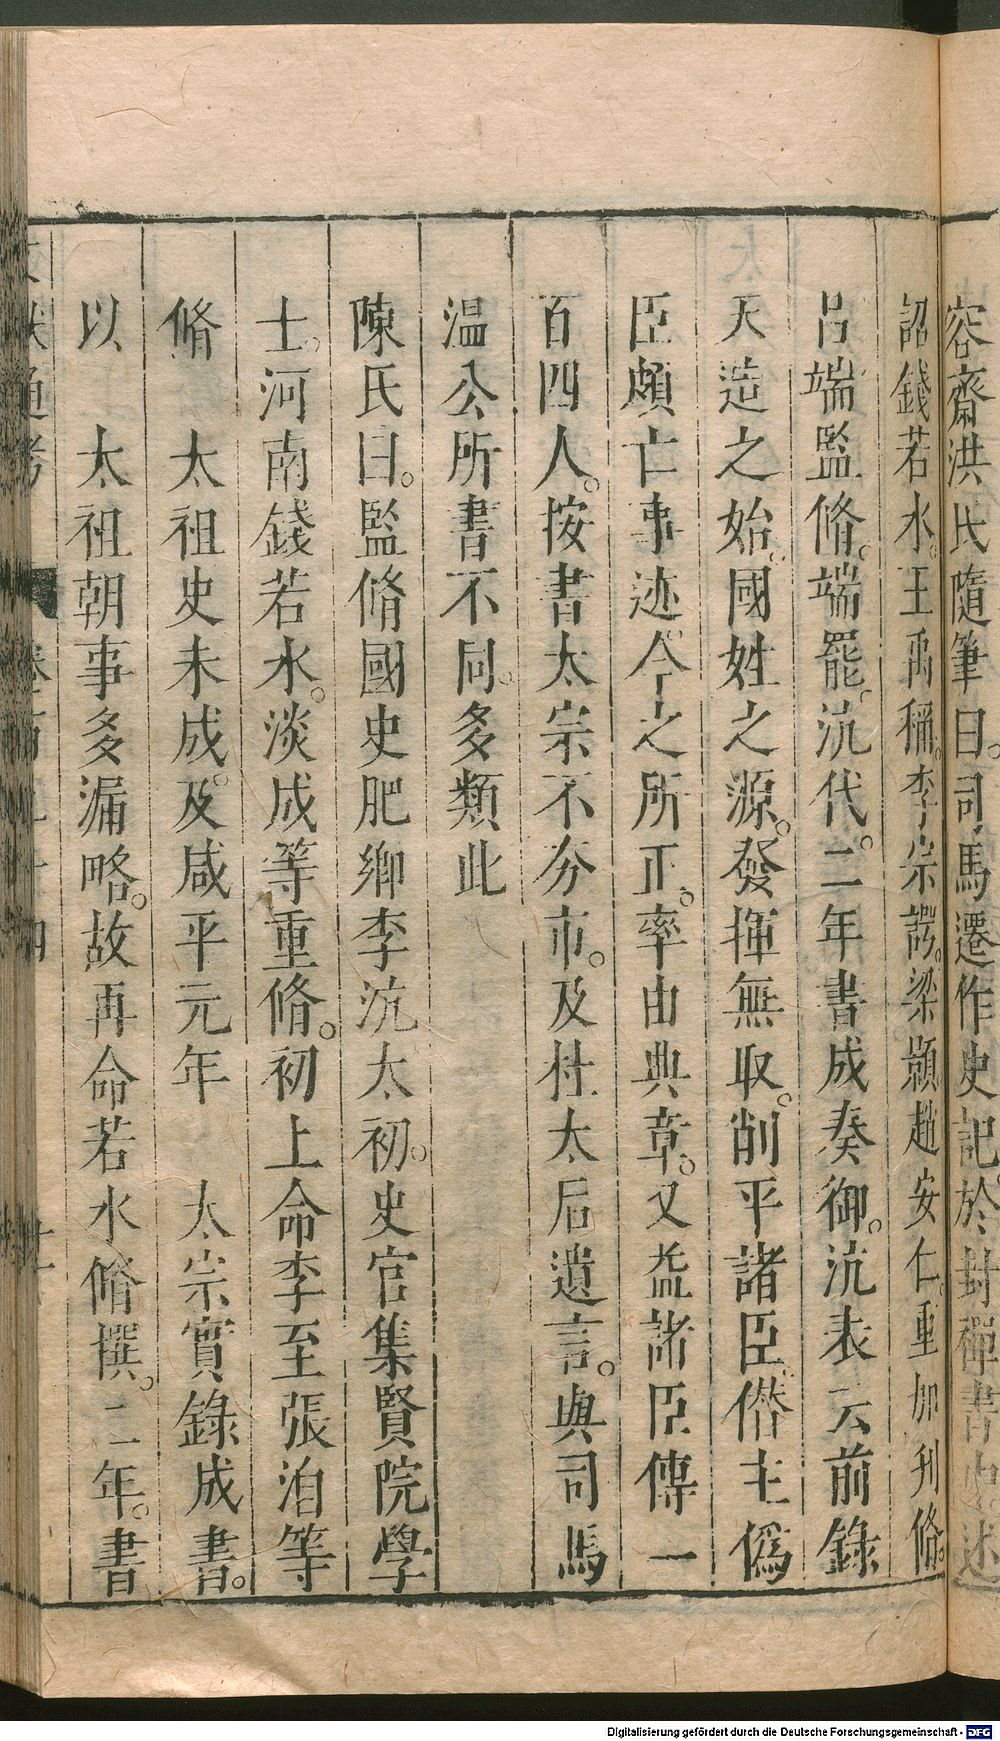 容齋洪氏隨筆曰司馬遷作史記於封禪書中述
詔錢若水王禹稱李宗諤梁顥趙安仁重加刋脩
呂端監脩端罷沆代二年書成奏御沆表云前錄
天造之始國姓之源發揮無取削平諸臣僭主偽
臣頗亡事迹今之所正率由典章又益諸臣傳一
百四人按書太宗不夯市及杜太后遺言與司馬
温公所書不同多類此
陳氏曰監脩國史肥鄉李沆太初史官集賢院學
士河南錢若水淡成等重脩初上命李至張洎等
脩 太祖史未成及咸平元年 太宗實錄成書
以 太祖朝事多漏略故再命若水脩撰二年書
文獻通考 卷百九十四
Digitalisierung gefördert durch die Deutsche Forschungsgemeinschaft - DFG